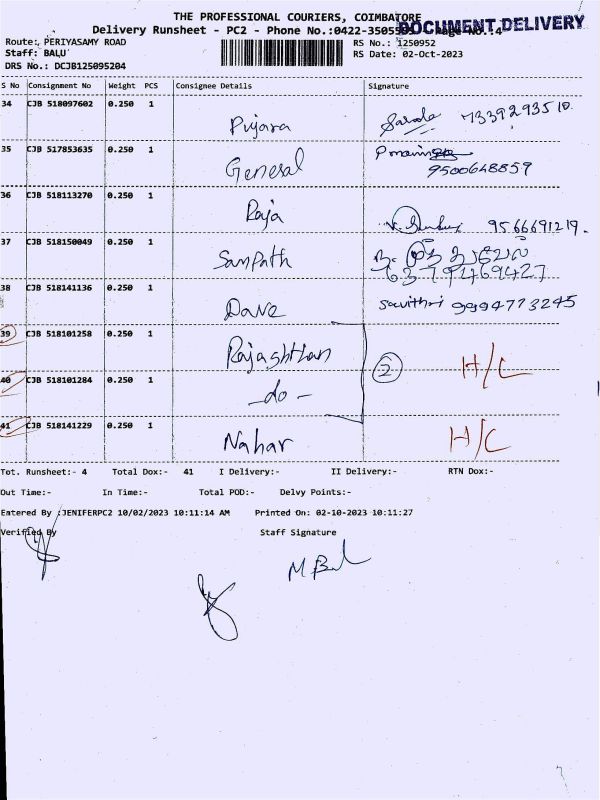 THE PROFESSIONAL COURIERS, COIMBATORE
Delivery Runsheet - PC2 - Phone No.:0422-3505505 Page No.:4
DOCUMENT DELIVERY
Route: PERIYASAMY ROAD RS No.: 1250952
Staff: BALU RS Date: 02-Oct-2023
DRS No.: DCJB125095204
S No Consignment No Weight PCS Consignee Details Signature
34 CJB 518097602 0.250 1 Pujara Sarola 7339293510.
35 CJB 517853635 0.250 1 General 9500648859
36 CJB 518113270 0.250 1 Raja 9566691219.
37 CJB 518150049 0.250 1 Sampath 6379169427
38 CJB 518141136 0.250 1 Dave Savithri 9994773245
39 CJB 518101258 0.250 1 Rajashthan 2 H/C
40 CJB 518101284 0.250 1 -do-
41 CJB 518141229 0.250 1 Nahar H/C
Tot. Runsheet:- 4 Total Dox:- 41 I Delivery:- II Delivery:- RTN Dox:-
Out Time:- In Time:- Total POD:- Delvy Points:-
Entered By :JENIFERPC2 10/02/2023 10:11:14 AM Printed On: 02-10-2023 10:11:27
Verified By Staff Signature